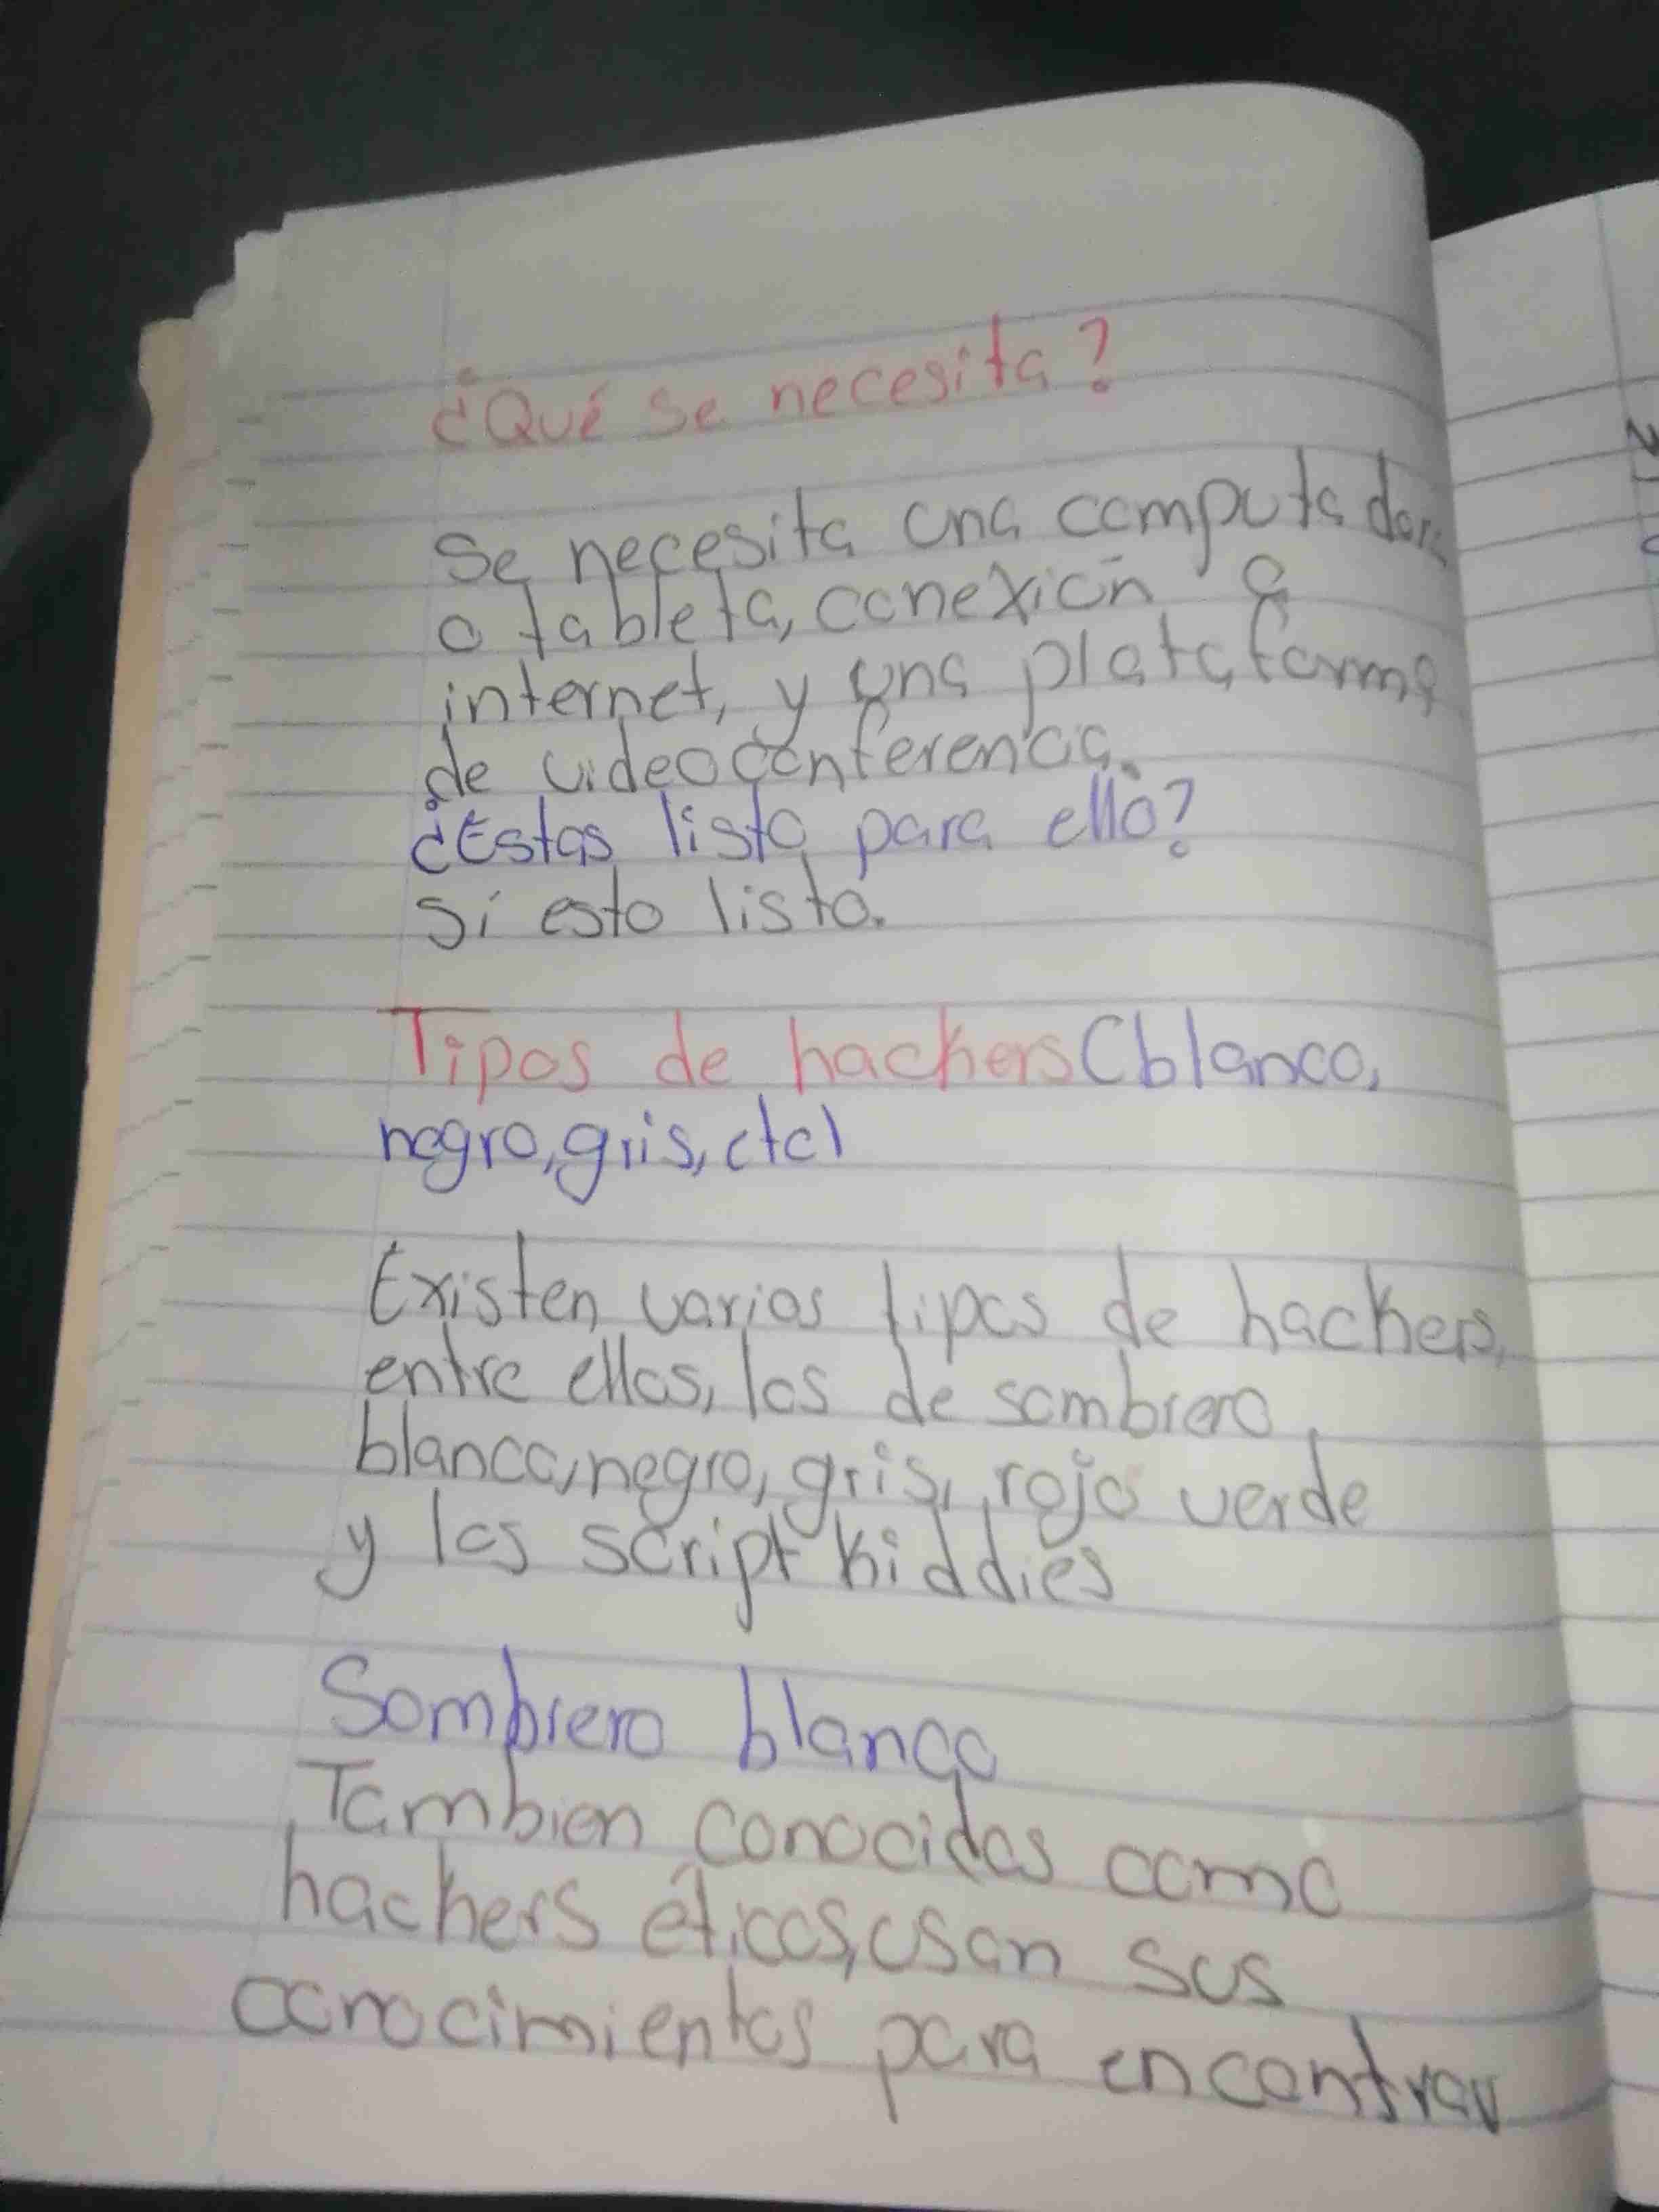 ¿Qué se necesita?
Se necesita una computadora
o tableta, conexión a
internet, y una plataforma
de videoconferencia.
¿Estas listo para ello?
Sí esto listo.
Tipos de hackers (blanco,
negro, gris, etc)
Existen varios tipos de hackers,
entre ellos, los de sombrero
blanco, negro, gris, rojo verde
y los script kiddies
Sombrero blanco
Tambien conocidos como
hackers éticos, usan sus
conocimientos para encontrar